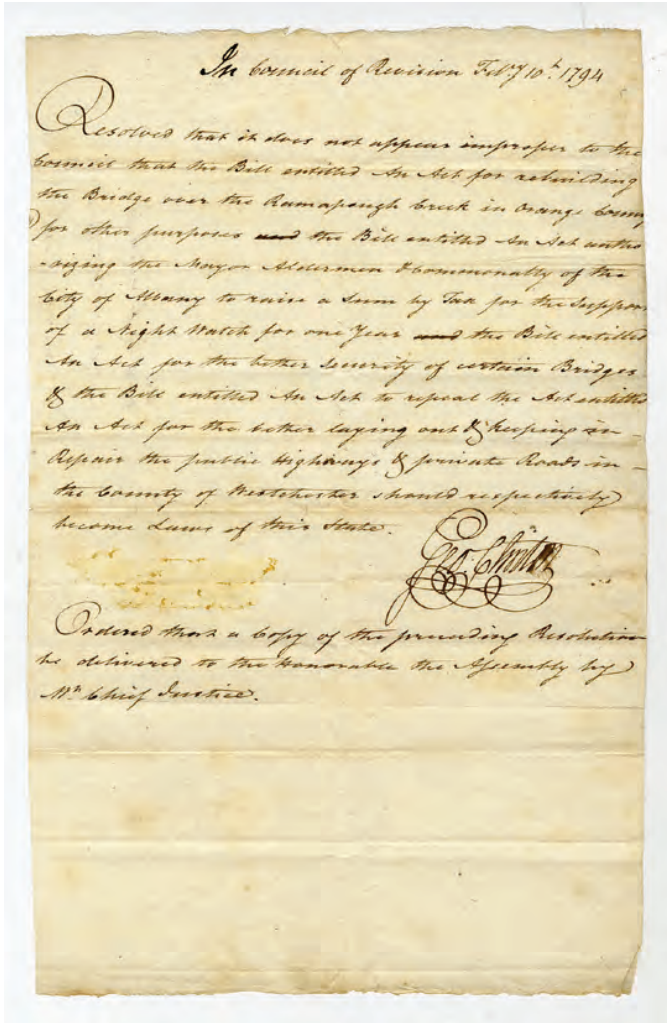 In Council of Revision Feby 10th. 1794
Resolved that it does not appear improper to the
Council that the Bill entitled An Act for rebuilding
the Bridge over the Ramapough Creek in Orange County
for other purposes and the Bill entitled An Act autho
-rizing the Mayor Aldermen & Commonalty of the
City of Albany to raise a Sum by Tax for the Support
of a Night Watch for one Year and the Bill entitled
An Act for the better Security of certain Bridges
& the Bill entitled An Act to repeal the Act entitled
An Act for the better laying out & keeping in
Repair the public Highways & private Roads in
the County of Westchester should respectively
become Laws of this State.
Geo. Clinton
Ordered that a Copy of the preceeding Resolution
be delivered to the Honorable the Assembly by
Mr. Chief Justice.